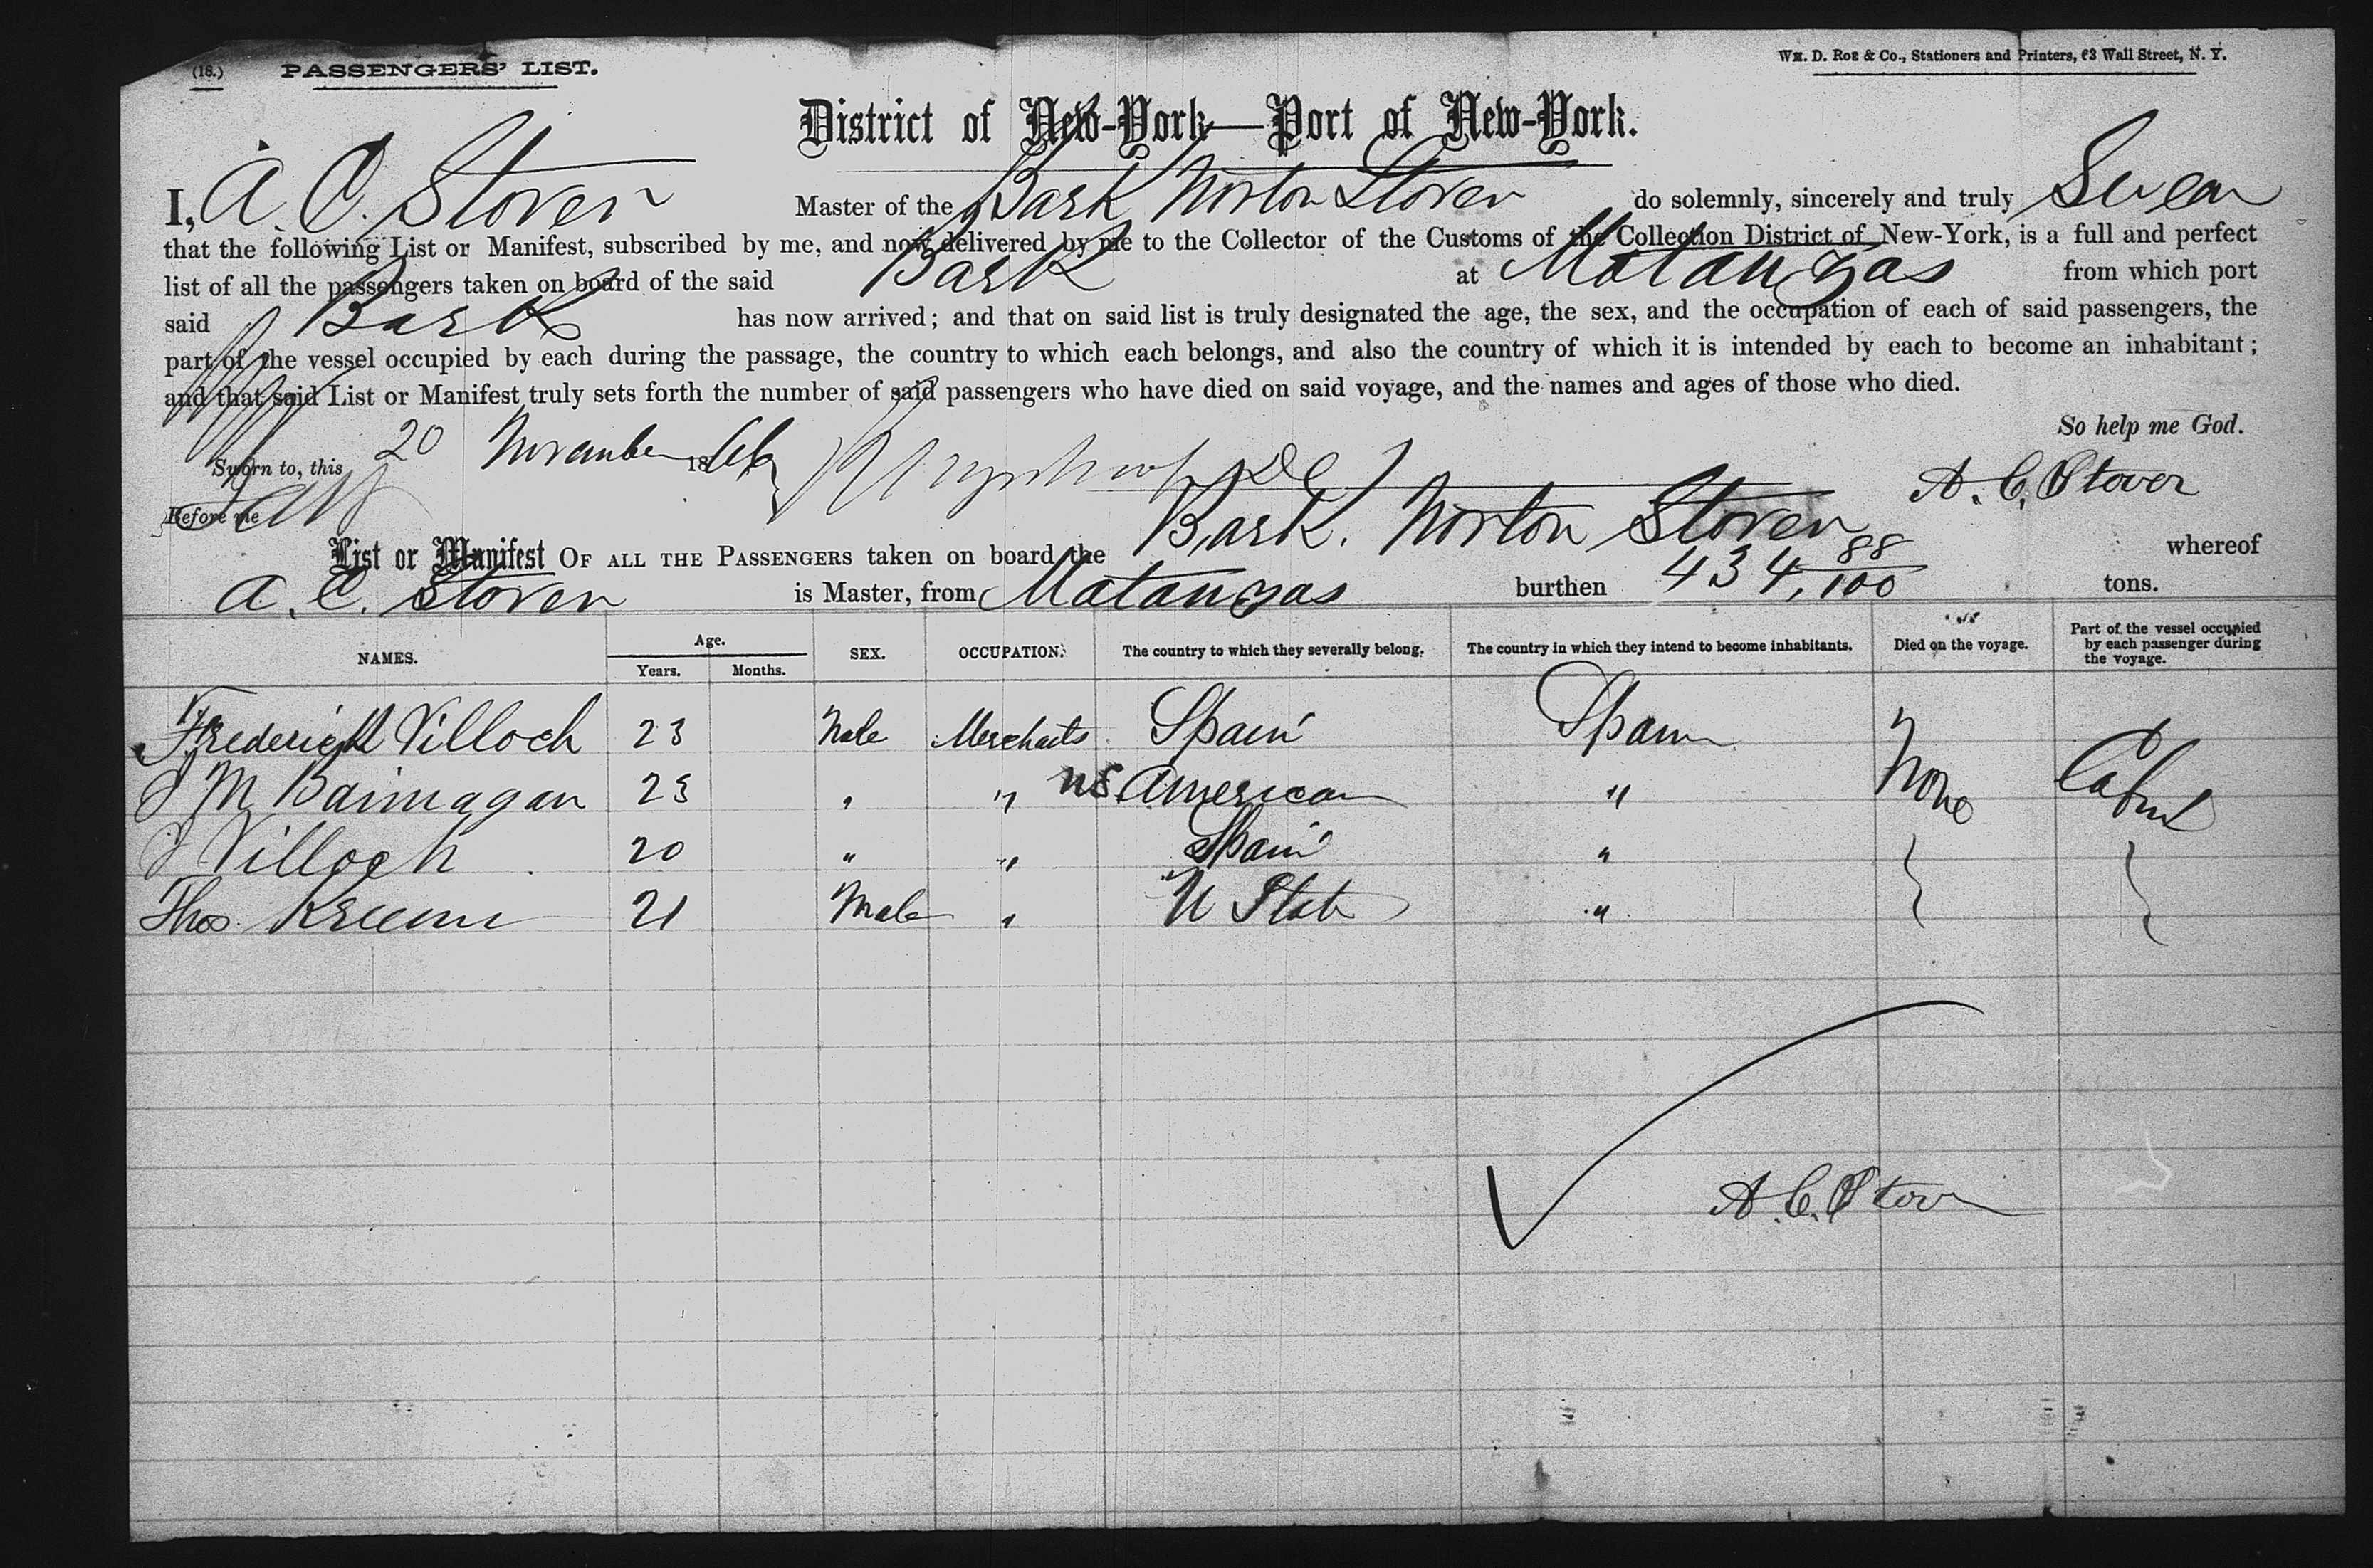 (18.) PASSENGERS' LIST.
WM. D. ROE & Co., Stationers and Printers, 63 Wall Street, N. Y.
District of New-York—Port of New-York.
I, A. C. Stover Master of the Bark Norton Stover do solemnly, sincerely and truly Swear
that the following List or Manifest, subscribed by me, and now delivered by me to the Collector of the Customs of the Collection District of New-York, is a full and perfect
list of all the passengers taken on board of the said Bark at Matanzas from which port
said Bark has now arrived; and that on said list is truly designated the age, the sex, and the occupation of each of said passengers, the
part of the vessel occupied by each during the passage, the country to which each belongs, and also the country of which it is intended by each to become an inhabitant;
and that said List or Manifest truly sets forth the number of said passengers who have died on said voyage, and the names and ages of those who died.
So help me God.
Sworn to, this 20 November 1866
A. C. Stover
Before me
List or Manifest OF ALL THE PASSENGERS taken on board the Bark. Norton Stover whereof
A. C. Stover is Master, from Matanzas burthen 434, 88/100 tons.
NAMES. Age. Years. Months. SEX. OCCUPATION. The country to which they severally belong. The country in which they intend to become inhabitants. Died on the voyage. Part of the vessel occupied by each passenger during the voyage.
Frederick Villoch 23 Male Merchants Spain Spain None
J M 23 " " US American "
J Villoch 20 " " Spain "
Thos. 21 Male " U State "
A. C. Stover